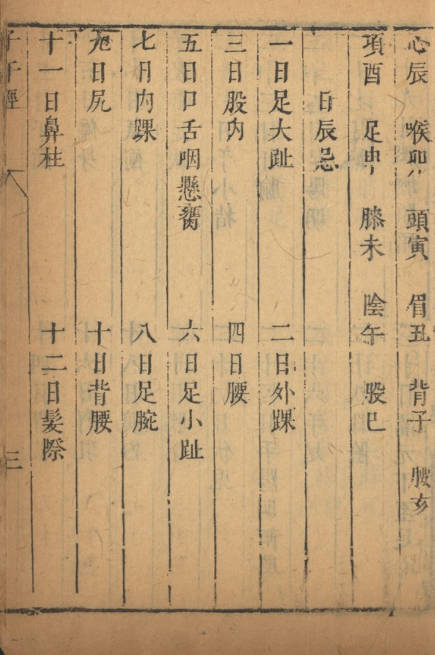 心辰 喉卯 頭寅 眉丑 背子 腰亥
項酉 足申 膝未 陰午 股巳
日辰忌
一日足大趾 二日外踝
三日股内 四日腰
五日口舌咽懸 六日足小趾
七日内踝 八日足腕
九日尻 十日背腰
十一日鼻柱 十二日髮際
子午經 三